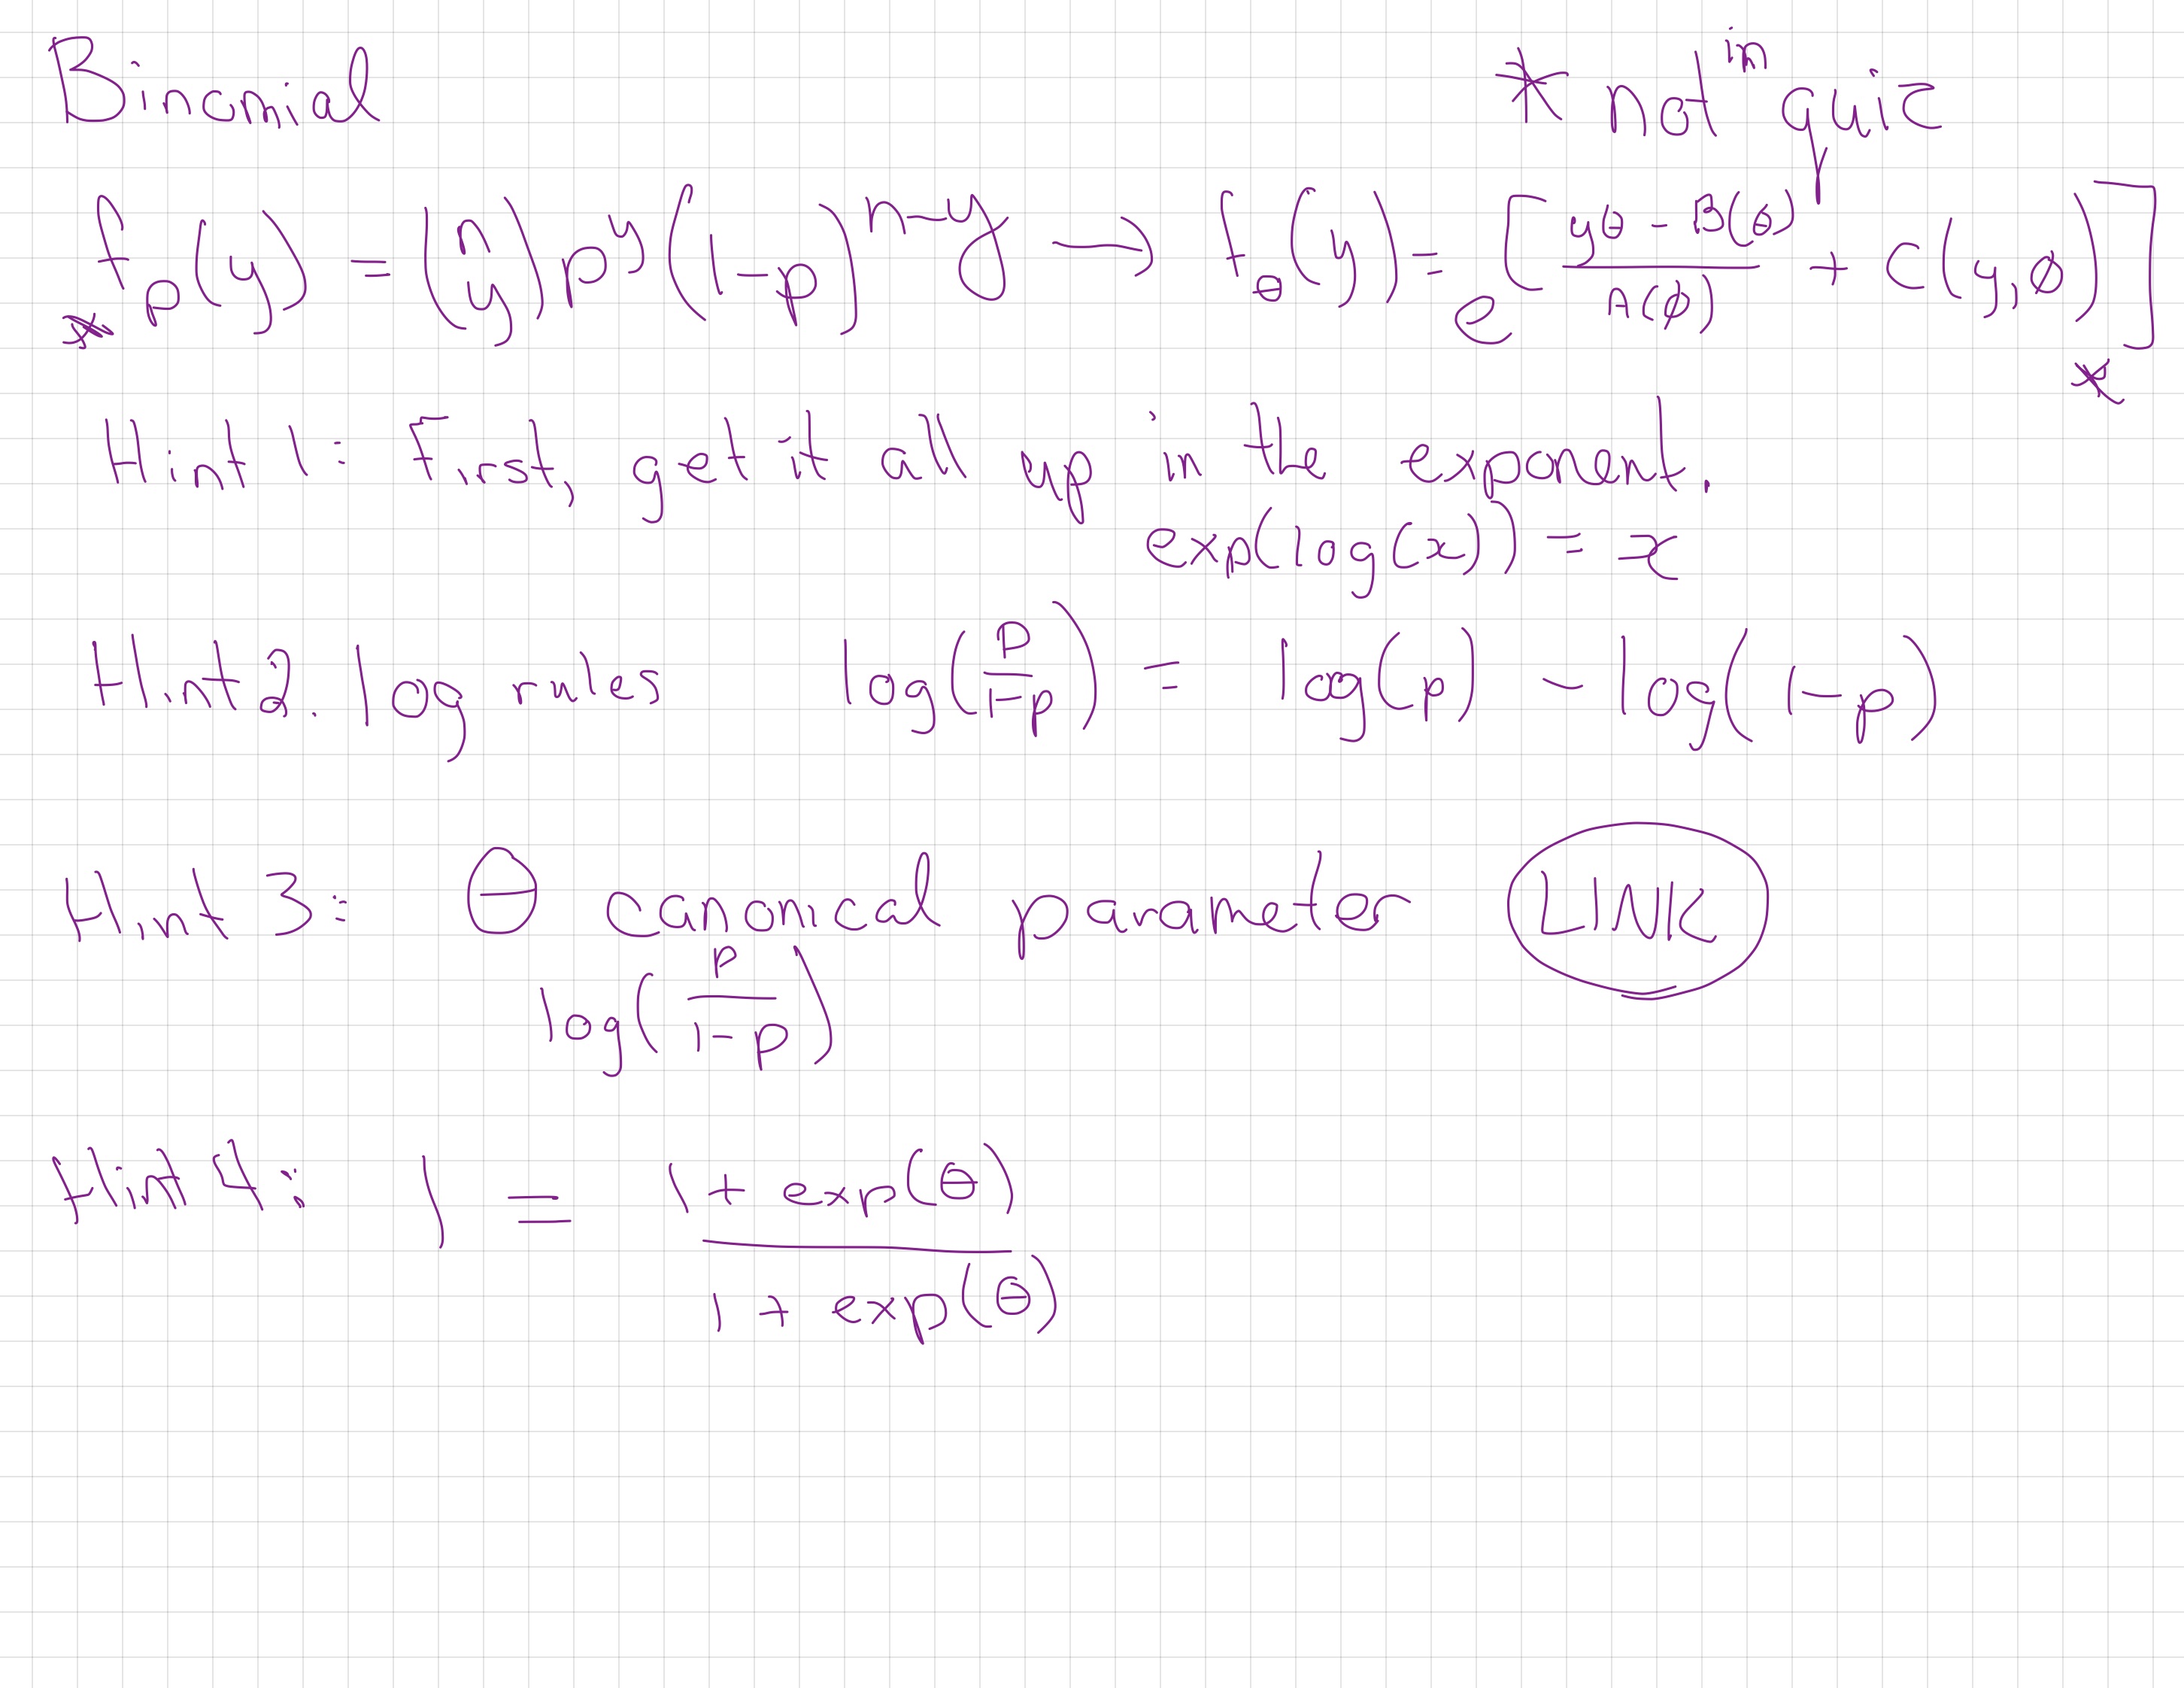 Binomial * not in quiz
f_p(y) = (n y) p^y (1-p)^{n-y} → f_θ(y) = e^[(yθ - B(θ))/A(φ) + C(y,φ)]
Hint 1: First, get it all up in the exponent.
exp(log(x)) = x
Hint 2. log rules log(p/(1-p)) = log(p) - log(1-p)
Hint 3: θ canonical parameter LINK
log(p/(1-p))
Hint 4: 1 = (1 + exp(θ))/(1 + exp(θ))